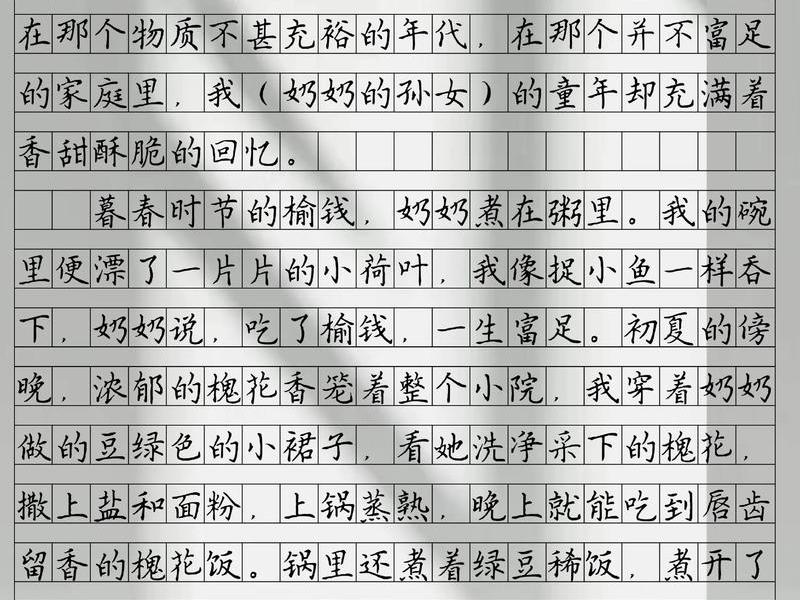 在那个物质不甚充裕的年代，在那个并不富足
的家庭里，我（奶奶的孙女）的童年却充满着
香甜酥脆的回忆。
暮春时节的榆钱，奶奶煮在粥里。我的碗
里便漂了一片片的小荷叶，我像捉小鱼一样吞
下，奶奶说，吃了榆钱，一生富足。初夏的傍
晚，浓郁的槐花香笼着整个小院，我穿着奶奶
做的豆绿色的小裙子，看她洗净采下的槐花，
撒上盐和面粉，上锅蒸熟，晚上就能吃到唇齿
留香的槐花饭。锅里还煮着绿豆稀饭，煮开了